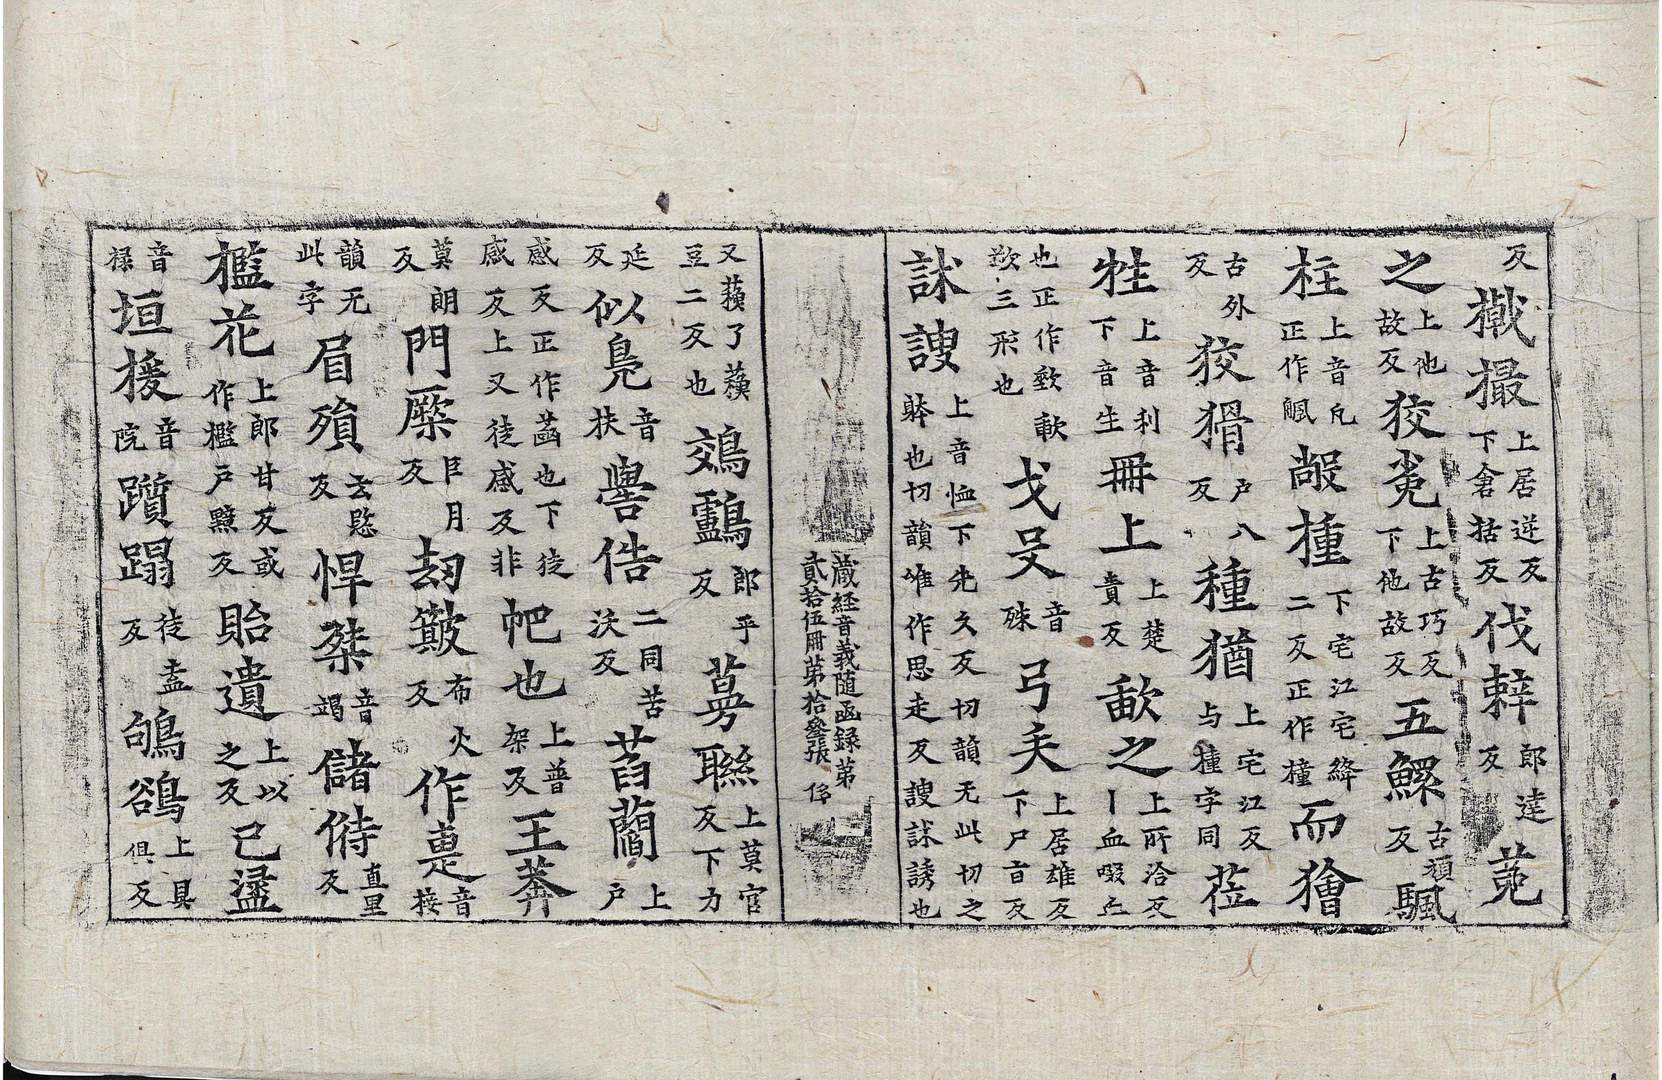 反 撠撮 上居逆反下倉括反 伐辢 郎達反 菟
之 上他故反 狡㝹 上古巧反下他故反 五鰥 古頑反 颿
柱 上音凡正作颿 敲橦 下宅江宅絳二反正作橦 而獪
古外反 狡猾 戶八反 種猶 上宅江反与橦字同 莅
牲 上音利下音生 冊上 上楚責反 歃之 上所洽反丨血啜
也正作㰸歃歃三形也 戈殳 音殊 弓矢 上居雄反下尸旨反
訹謏 上音恤下先久反切韻无此切之躰也切韻唯作思走反謏訹誘也
蔵経音義随函録苐貳拾伍冊苐拾叅張
又蘋了蘋豆二反也 鵁鸕 郎乎反 蔓聯 上莫官反下力
延反 似鳧 音扶 嚳俈 二同苦沃反 菩藺 上戶
感反正作菡也下徒感反上又徒感反非 帊也 上普架反 王莽
莫朗反 門橜 巨月反 刼簸 布火反 作疌 音接
韻无此字 眉殞 云愍反 悍桀 音竭 儲偫 直里反
檻花 上郎甘反或作檻戶黤反 貽遺 上以之反 已盪
音禄 垣援 音院 躓蹋 徒盍反 鴝鵒 上具俱反